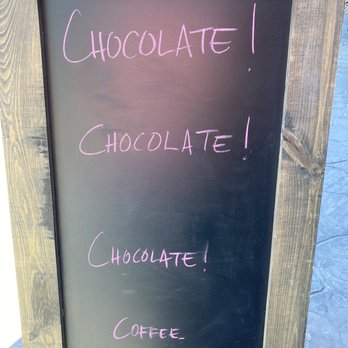 CHOCOLATE!
CHOCOLATE!
CHOCOLATE!
COFFEE..